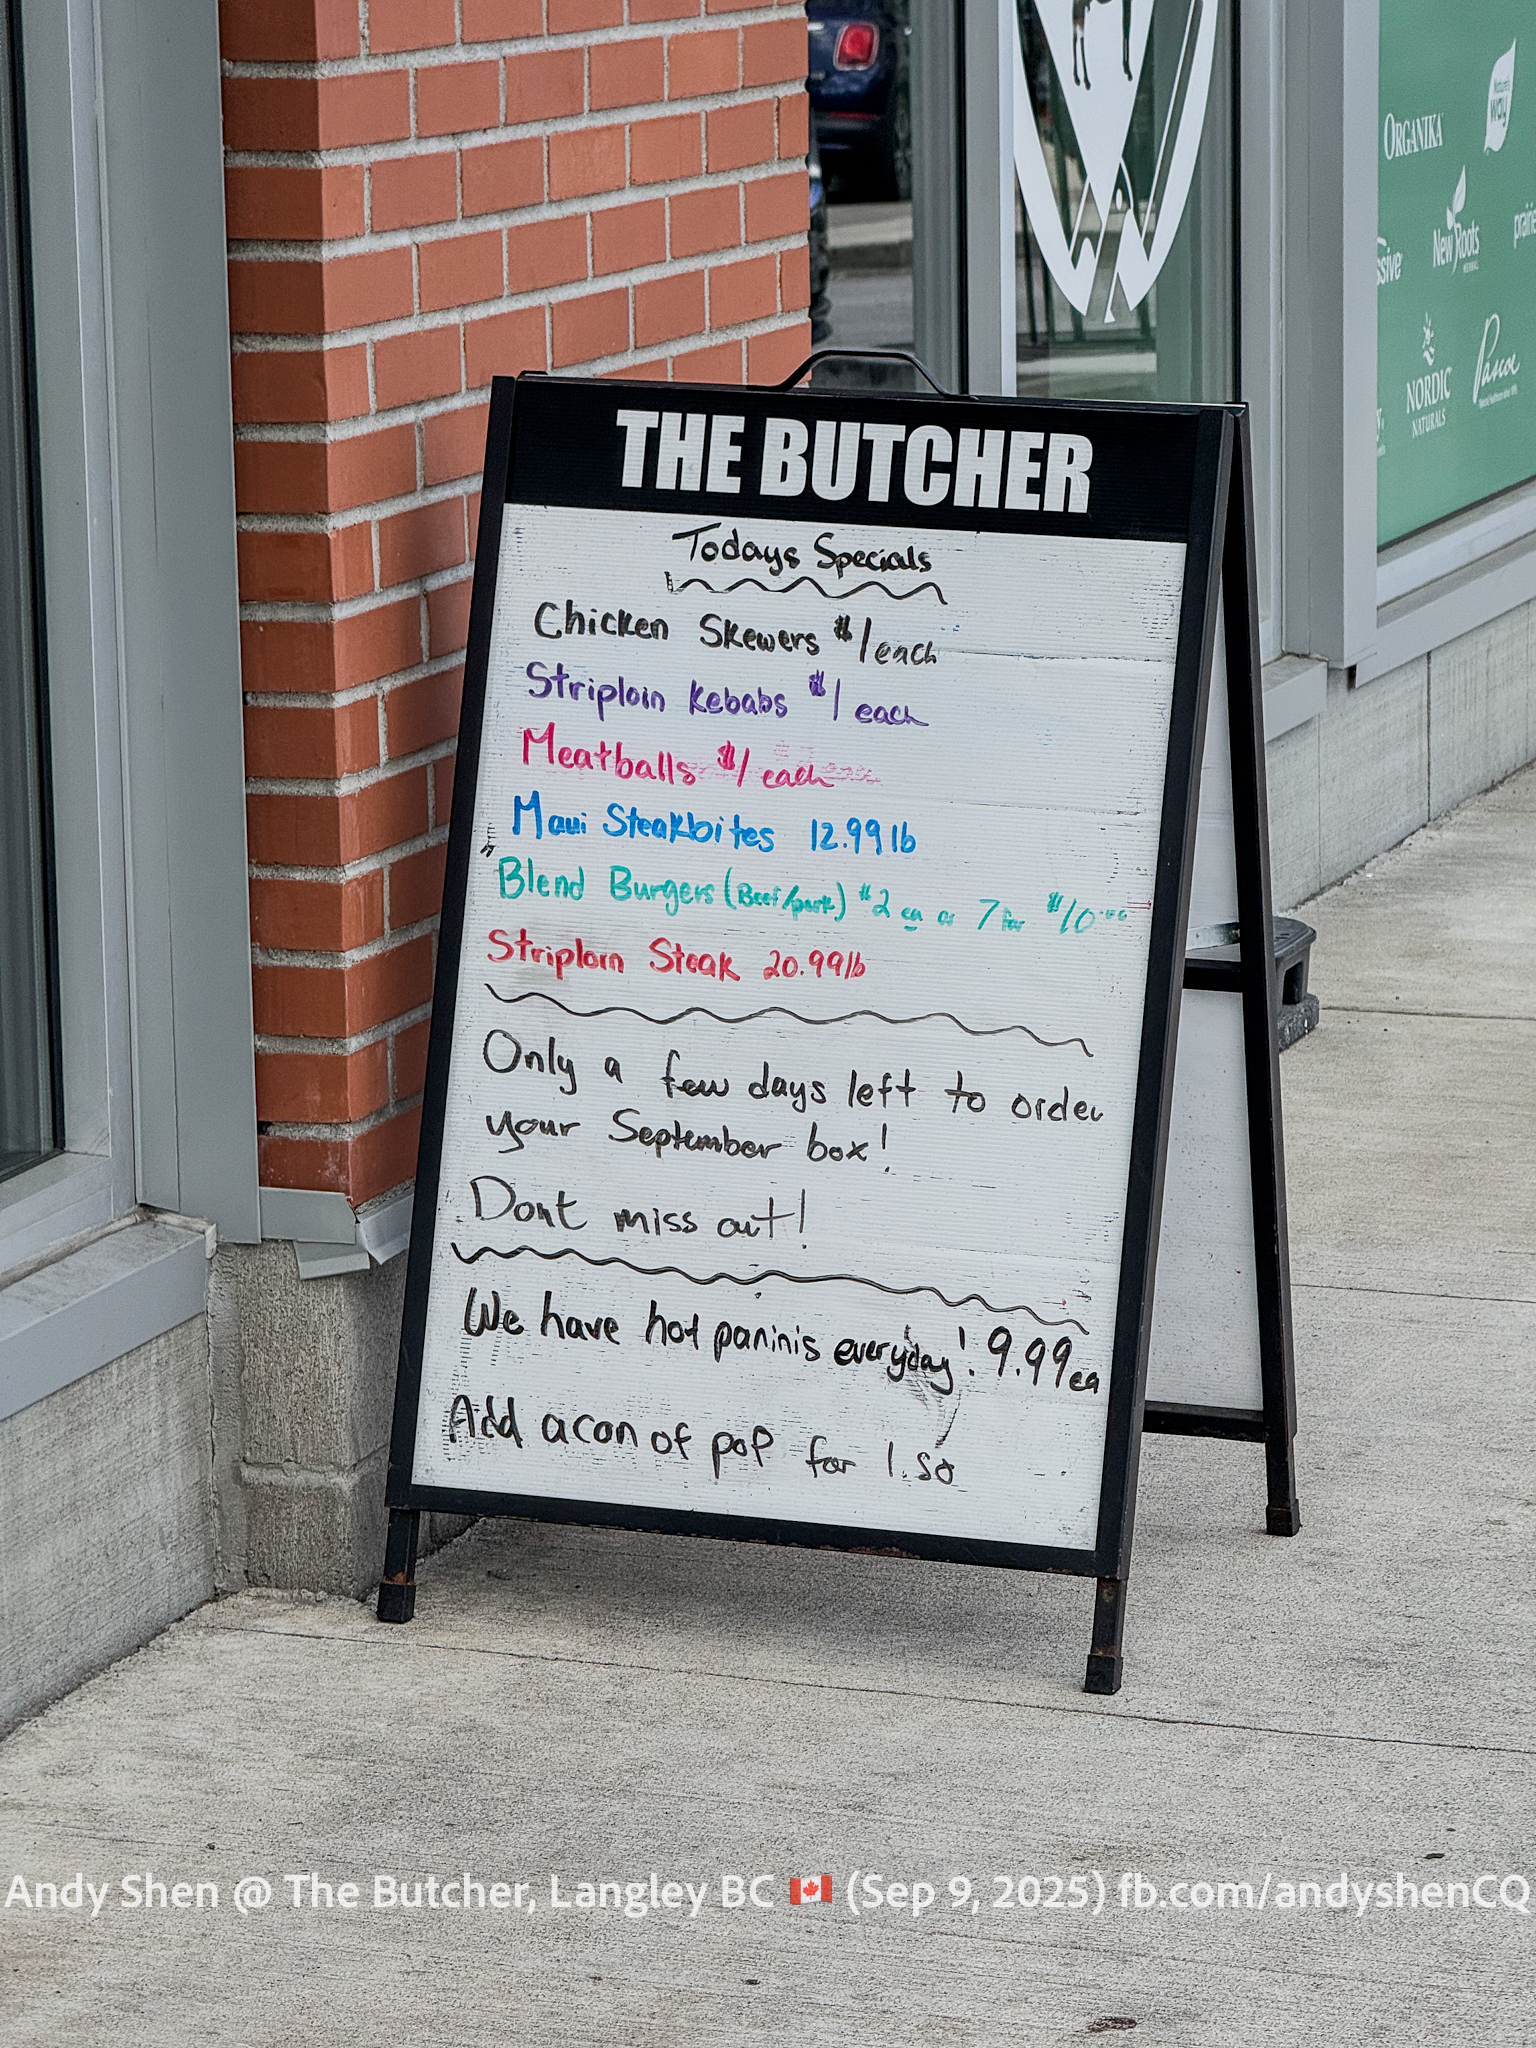 THE BUTCHER
Todays Specials
Chicken Skewers $1/each
Striploin Kebabs $1/each
Meatballs $1/each
Maui Steakbites 12.99 lb
Blend Burgers (Beef/pork) $2 ea or 7 for $10.00
Striploin Steak 20.99 lb
Only a few days left to order
your September box!
Dont miss out!
We have hot paninis everyday! 9.99 ea
Add a can of pop for 1.50
ORGANIKA
Nature's
Way
New Roots
HERBAL
NORDIC
NATURALS
Pascoe
Andy Shen @ The Butcher, Langley BC 🇨🇦 (Sep 9, 2025) fb.com/andyshenCQ